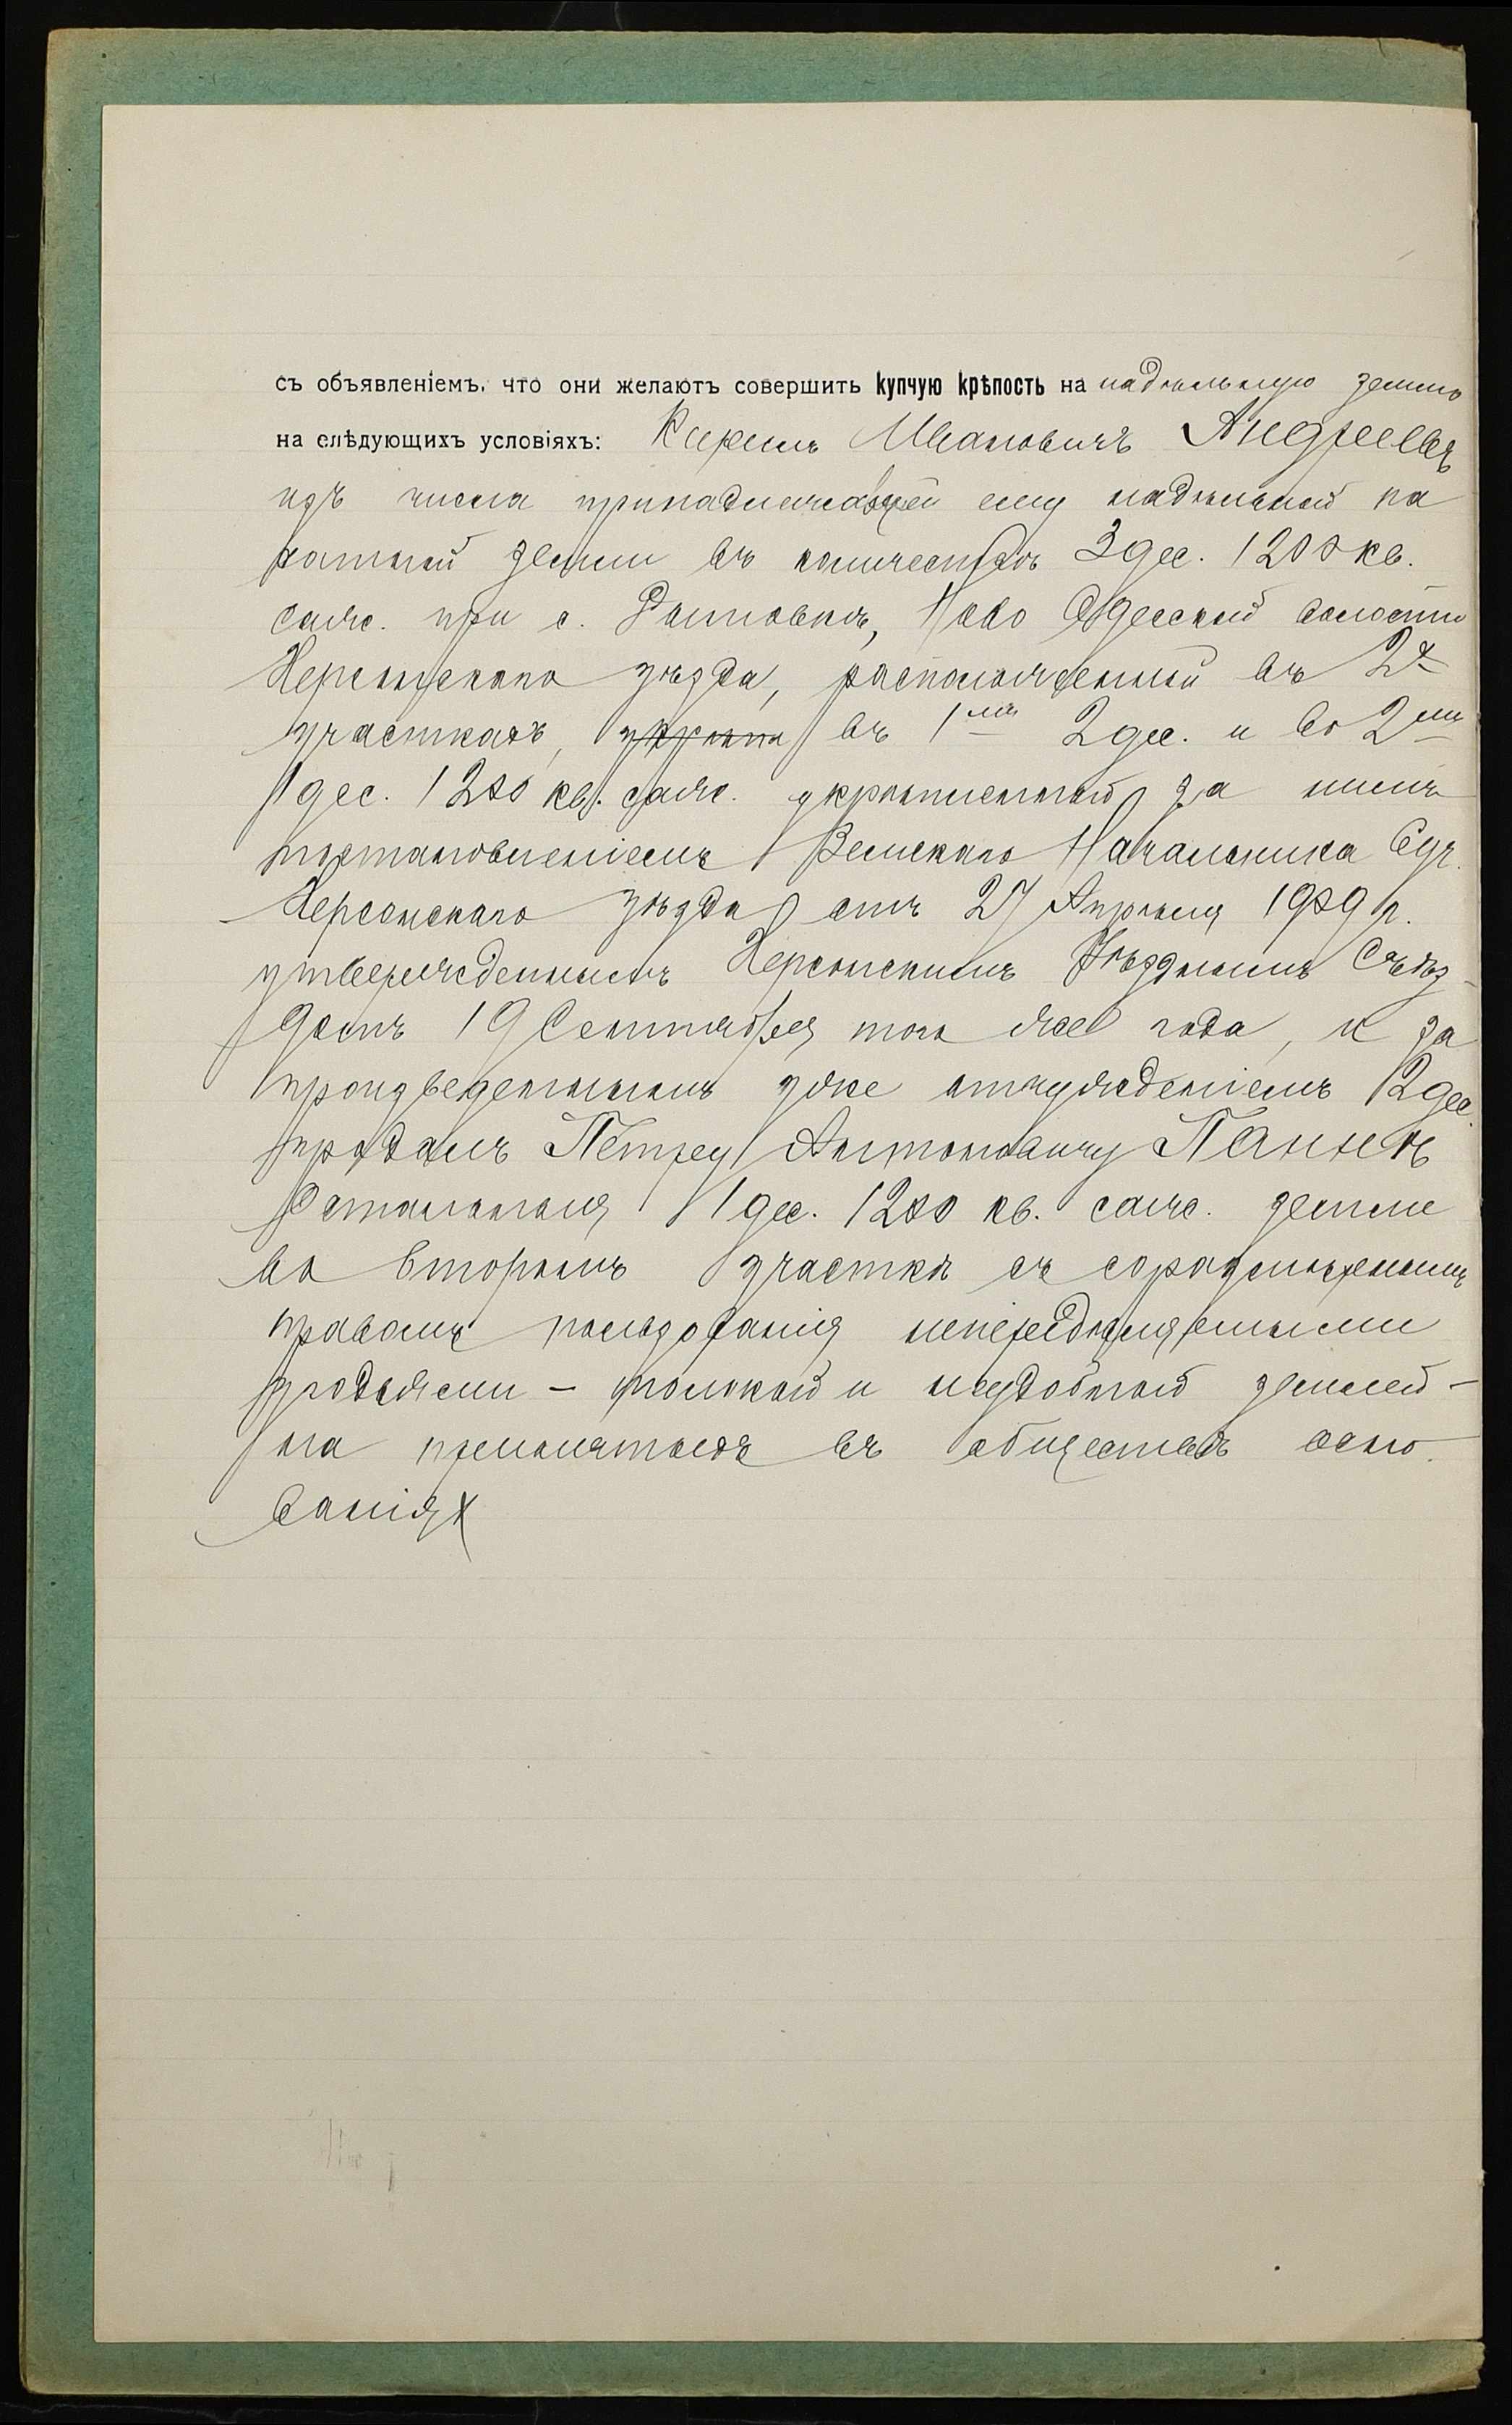 съ объявленіемъ, что они желаютъ совершить купчую крѣпость на надѣльную землю
на слѣдующихъ условіяхъ: Кирилъ Ивановичъ Андреевъ
изъ числа принадлежавшей ему надѣльной па
хатной земли въ количествѣ 3 дес. 1200 кв.
саж. при с. Ново Одесской волости
Херсонскаго уѣзда, расположенной въ 2х
участкахъ, укрѣпл въ 1мъ 2 дес. и во 2мъ
1 дес. 1200 кв. саж. укрѣпленной за нимъ
постановленіемъ Земскаго Начальника 6 уч.
Херсонскаго уѣзда отъ 27 Апрѣля 1909 г.
утвержденнымъ Херсонскимъ Уѣзднымъ Съѣз-
домъ 19 Сентября того же года, и за
произведеннымъ уже отчужденіемъ 2 дес.
продалъ Петру Антоновичу
остальныя 1 дес. 1200 кв. саж. земли
во второмъ участкѣ съ соразмѣрнымъ
правомъ пользованія непередѣляемыми
угодьями - толокой и неудобной землей -
на принятыхъ въ обществѣ осно-
ваніях